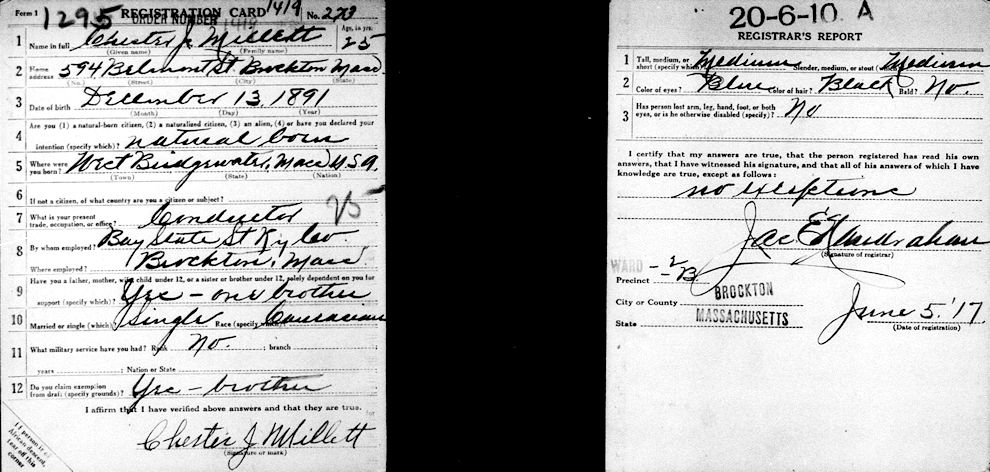 Form 1 1295 REGISTRATION CARD 1419 No. 273
ORDER NUMBER
1 Name in full Chester J. Millett Age, in yrs. 25
(Given name) (Family name)
2 Home address 594 Belmont St Brockton Mass
(No.) (Street) (City) (State)
3 Date of birth December 13, 1891
(Month) (Day) (Year)
4 Are you (1) a natural-born citizen, (2) a naturalized citizen, (3) an alien, (4) or have you declared your
intention (specify which)? natural born
5 Where were you born? West Bridgewater, Mass U.S.A.
(Town) (State) (Nation)
6 If not a citizen, of what country are you a citizen or subject?
7 What is your present trade, occupation, or office? Conductor 25
8 By whom employed? Bay State St Ry Co.
Where employed? Brockton, Mass
9 Have you a father, mother, wife, child under 12, or a sister or brother under 12, solely dependent on you for
support (specify which)? Yes - one brother
10 Married or single (which)? Single Race (specify which)? Caucasian
11 What military service have you had? Rank No. ; branch
years ; Nation or State
12 Do you claim exemption from draft (specify grounds)? Yes - brother
I affirm that I have verified above answers and that they are true.
Chester J Millett
(Signature or mark)
If person is of
African descent,
tear off this
corner
20-6-10. A
REGISTRAR'S REPORT
1 Tall, medium, or short (specify which)? Medium Slender, medium, or stout (which)? Medium
2 Color of eyes? Blue Color of hair? Black Bald? No.
3 Has person lost arm, leg, hand, foot, or both
eyes, or is he otherwise disabled (specify)? No
I certify that my answers are true, that the person registered has read his own
answers, that I have witnessed his signature, and that all of his answers of which I have
knowledge are true, except as follows:
no exceptions
(Signature of registrar)
WARD 2
Precinct B.
City or County BROCKTON
State MASSACHUSETTS
June 5. '17
(Date of registration)